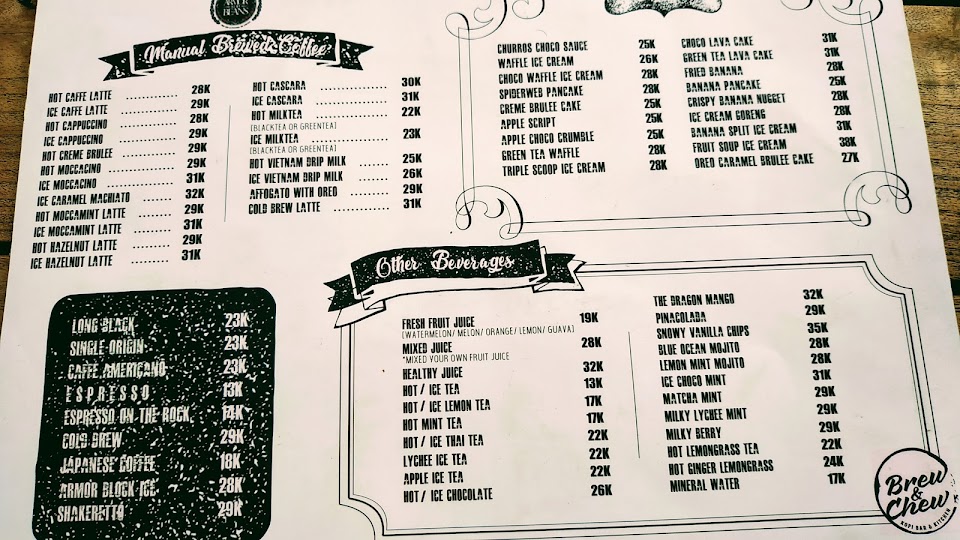 ARMOR
BEANS
Manual Brewed Coffee
HOT CAFFE LATTE ............ 28K
ICE CAFFE LATTE ............ 29K
HOT CAPPUCCINO ............ 28K
ICE CAPPUCCINO ............ 29K
HOT CREME BRULEE ......... 29K
HOT MOCCACINO ............ 29K
ICE MOCCACINO ............ 31K
ICE CARAMEL MACHIATO ....... 32K
HOT MOCCAMINT LATTE ......... 29K
ICE MOCCAMINT LATTE ......... 31K
HOT HAZELNUT LATTE ......... 29K
ICE HAZELNUT LATTE ......... 31K
HOT CASCARA ............... 30K
ICE CASCARA ............... 31K
HOT MILKTEA ............... 22K
(BLACKTEA OR GREENTEA)
ICE MILKTEA ............... 23K
(BLACKTEA OR GREENTEA)
HOT VIETNAM DRIP MILK ....... 25K
ICE VIETNAM DRIP MILK ....... 26K
AFFOGATO WITH OREO ......... 29K
COLD BREW LATTE ............ 31K
CHURROS CHOCO SAUCE 25K
WAFFLE ICE CREAM 26K
CHOCO WAFFLE ICE CREAM 28K
SPIDERWEB PANCAKE 28K
CREME BRULEE CAKE 25K
APPLE SCRIPT 25K
APPLE CHOCO CRUMBLE 25K
GREEN TEA WAFFLE 28K
TRIPLE SCOOP ICE CREAM 28K
CHOCO LAVA CAKE 31K
GREEN TEA LAVA CAKE 31K
FRIED BANANA 28K
BANANA PANCAKE 25K
CRISPY BANANA NUGGET 28K
ICE CREAM GORENG 28K
BANANA SPLIT ICE CREAM 31K
FRUIT SOUP ICE CREAM 38K
OREO CARAMEL BRULEE CAKE 27K
LONG BLACK 23K
SINGLE ORIGIN 23K
CAFFE AMERICANO 23K
ESPRESSO 13K
ESPRESSO ON THE ROCK 14K
COLD BREW 29K
JAPANESE COFFEE 18K
ARMOR BLOCK ICE 28K
SHAKERETTO 29K
Other Beverages
FRESH FRUIT JUICE 19K
(WATERMELON/ MELON/ ORANGE/ LEMON/ GUAVA)
MIXED JUICE 28K
*MIXED YOUR OWN FRUIT JUICE
HEALTHY JUICE 32K
HOT / ICE TEA 13K
HOT / ICE LEMON TEA 17K
HOT MINT TEA 17K
HOT / ICE THAI TEA 22K
LYCHEE ICE TEA 22K
APPLE ICE TEA 22K
HOT / ICE CHOCOLATE 26K
THE DRAGON MANGO 32K
PINACOLADA 29K
SNOWY VANILLA CHIPS 35K
BLUE OCEAN MOJITO 28K
LEMON MINT MOJITO 28K
ICE CHOCO MINT 31K
MATCHA MINT 29K
MILKY LYCHEE MINT 29K
MILKY BERRY 29K
HOT LEMONGRASS TEA 22K
HOT GINGER LEMONGRASS 24K
MINERAL WATER 17K
Brew
&
Chew
KOPI BAR & KITCHEN